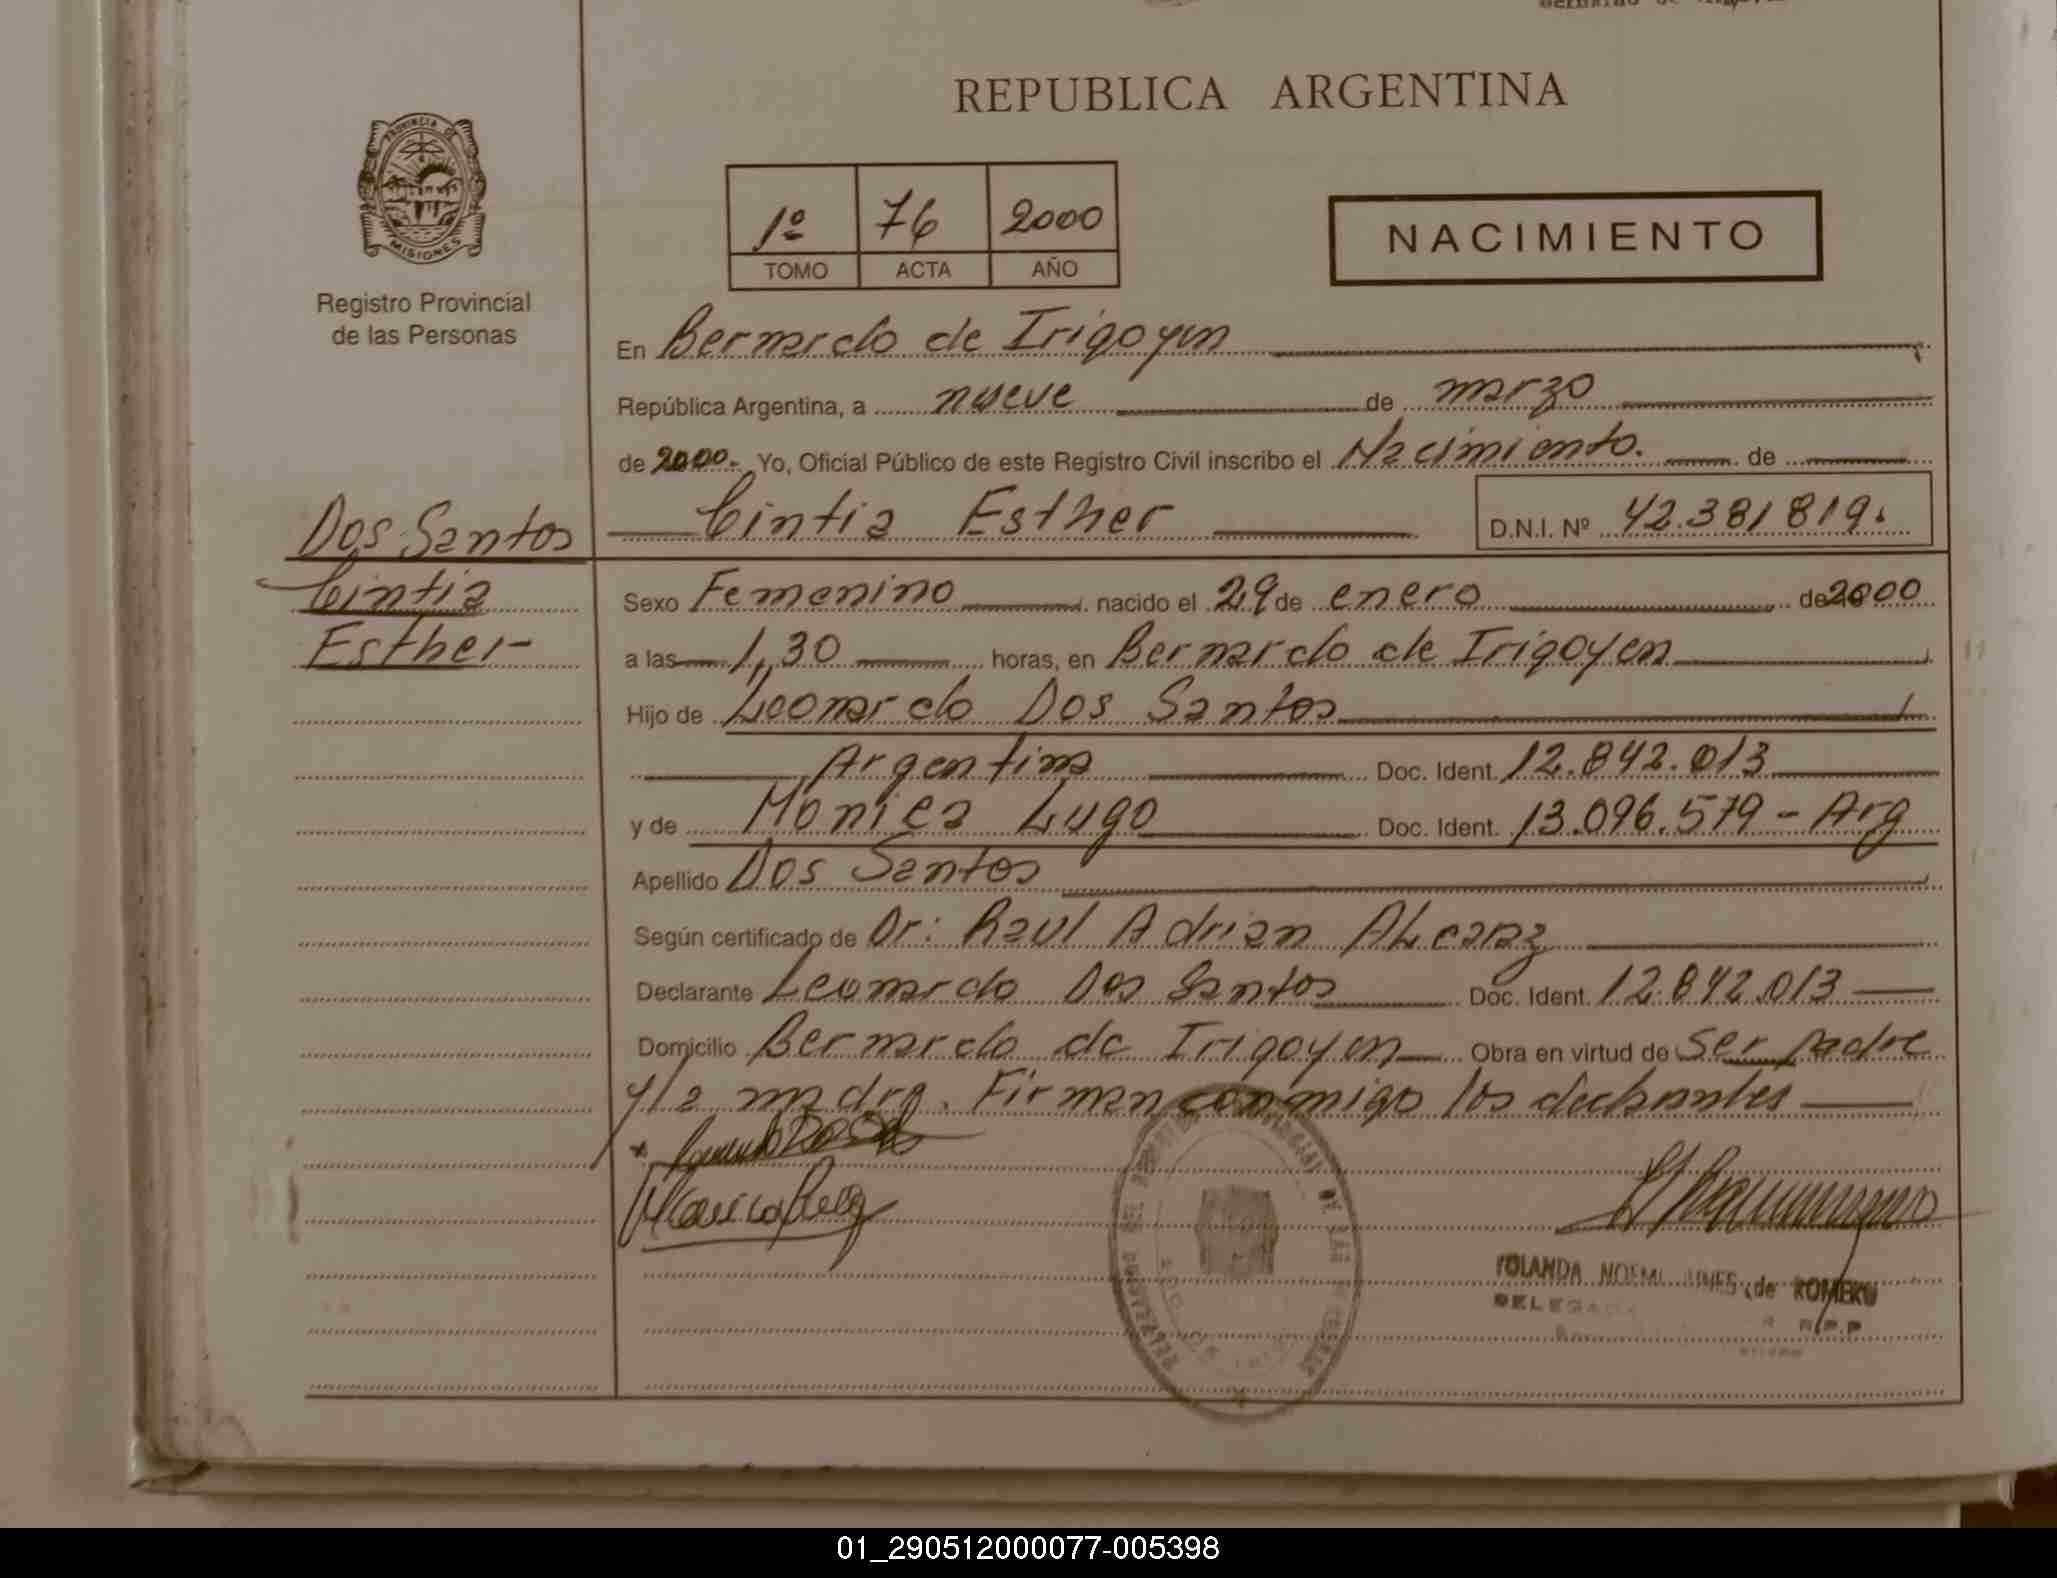 REPUBLICA ARGENTINA
PROVINCIA DE
MISIONES
Registro Provincial
de las Personas
1º 76 2000
TOMO ACTA AÑO
NACIMIENTO
En Bernardo de Irigoyen
República Argentina, a nueve de marzo
de 2000.- Yo, Oficial Público de este Registro Civil inscribo el Nacimiento. de
Cintia Esther D.N.I. Nº 42.381819.
Dos Santos
Cintia
Esther-
Sexo Femenino nacido el 29 de enero de 2000
a las 1,30 horas, en Bernardo de Irigoyen
Hijo de Leonardo Dos Santos
Argentina Doc. Ident. 12.842.013
y de Monica Lugo Doc. Ident. 13.096.579 - Arg
Apellido Dos Santos
Según certificado de Dr: Raul Adrian ALcaraz
Declarante Leonardo Dos Santos Doc. Ident. 12.842.013
Domicilio Bernardo de Irigoyen Obra en virtud de ser padre
y la madre. Firman conmigo los declarantes
YOLANDA NOEMI de ROMERO
DELEGADA
R.P.P
01_290512000077-005398